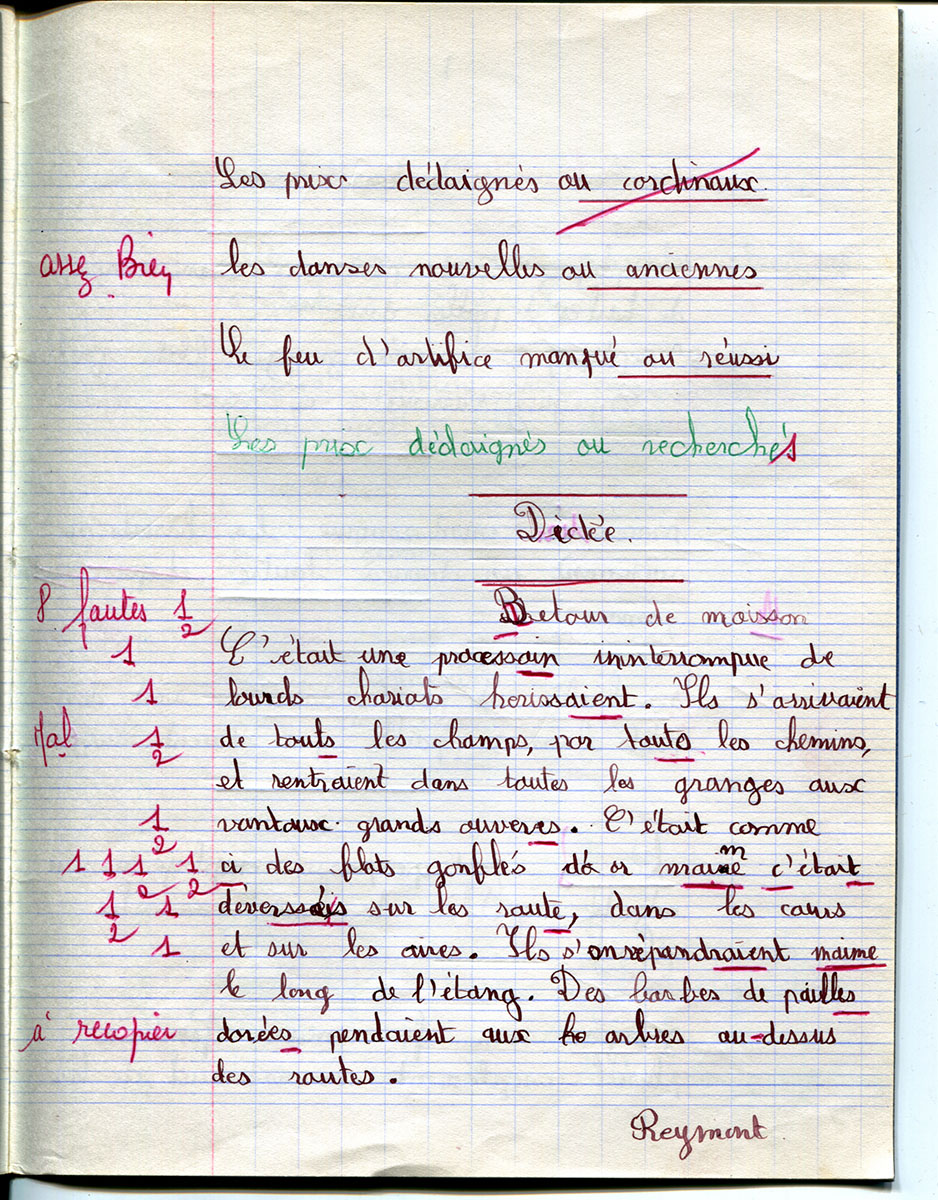 Les prix dédaignés ou cordinaux.
assez Bien les danses nouvelles ou anciennes
Le feu d'artifice manqué ou réussi
Les prix dédaignés ou recherchés
Dictée.
8 fautes 1/2 Retour de moisson
1 C'était une processain ininterrompue de
1 lourds chariots herissaient. Ils s'arrivaient
Mal 1/2 de touts les champs, par touts les chemins,
et rentraient dans toutes les granges aux
1/2 vantaux grands ouveres. C'était comme
1 1 1/2 1/2 ci des flots gonflés d'or maime c'était
1/2 1 déversséis sur les route, dans les cours
1 et sur les aires. Ils s'onrépandraient maime
le long de l'étang. Des barbes de pailles
à recopier dorées pendaient aux arbres au-dessus
des routes.
Reymont